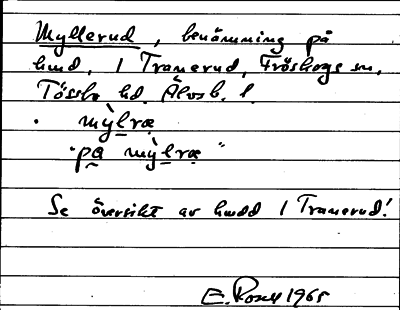 Myllerud, benämning på
hmd. 1 Tranerud, Fröskogs sn,
Tössbo hd. Älvsb. l.
· mỳlræ
"på mỳlræ"
Se översikt av hmdd 1 Tranerud!
E. Rosell 1965